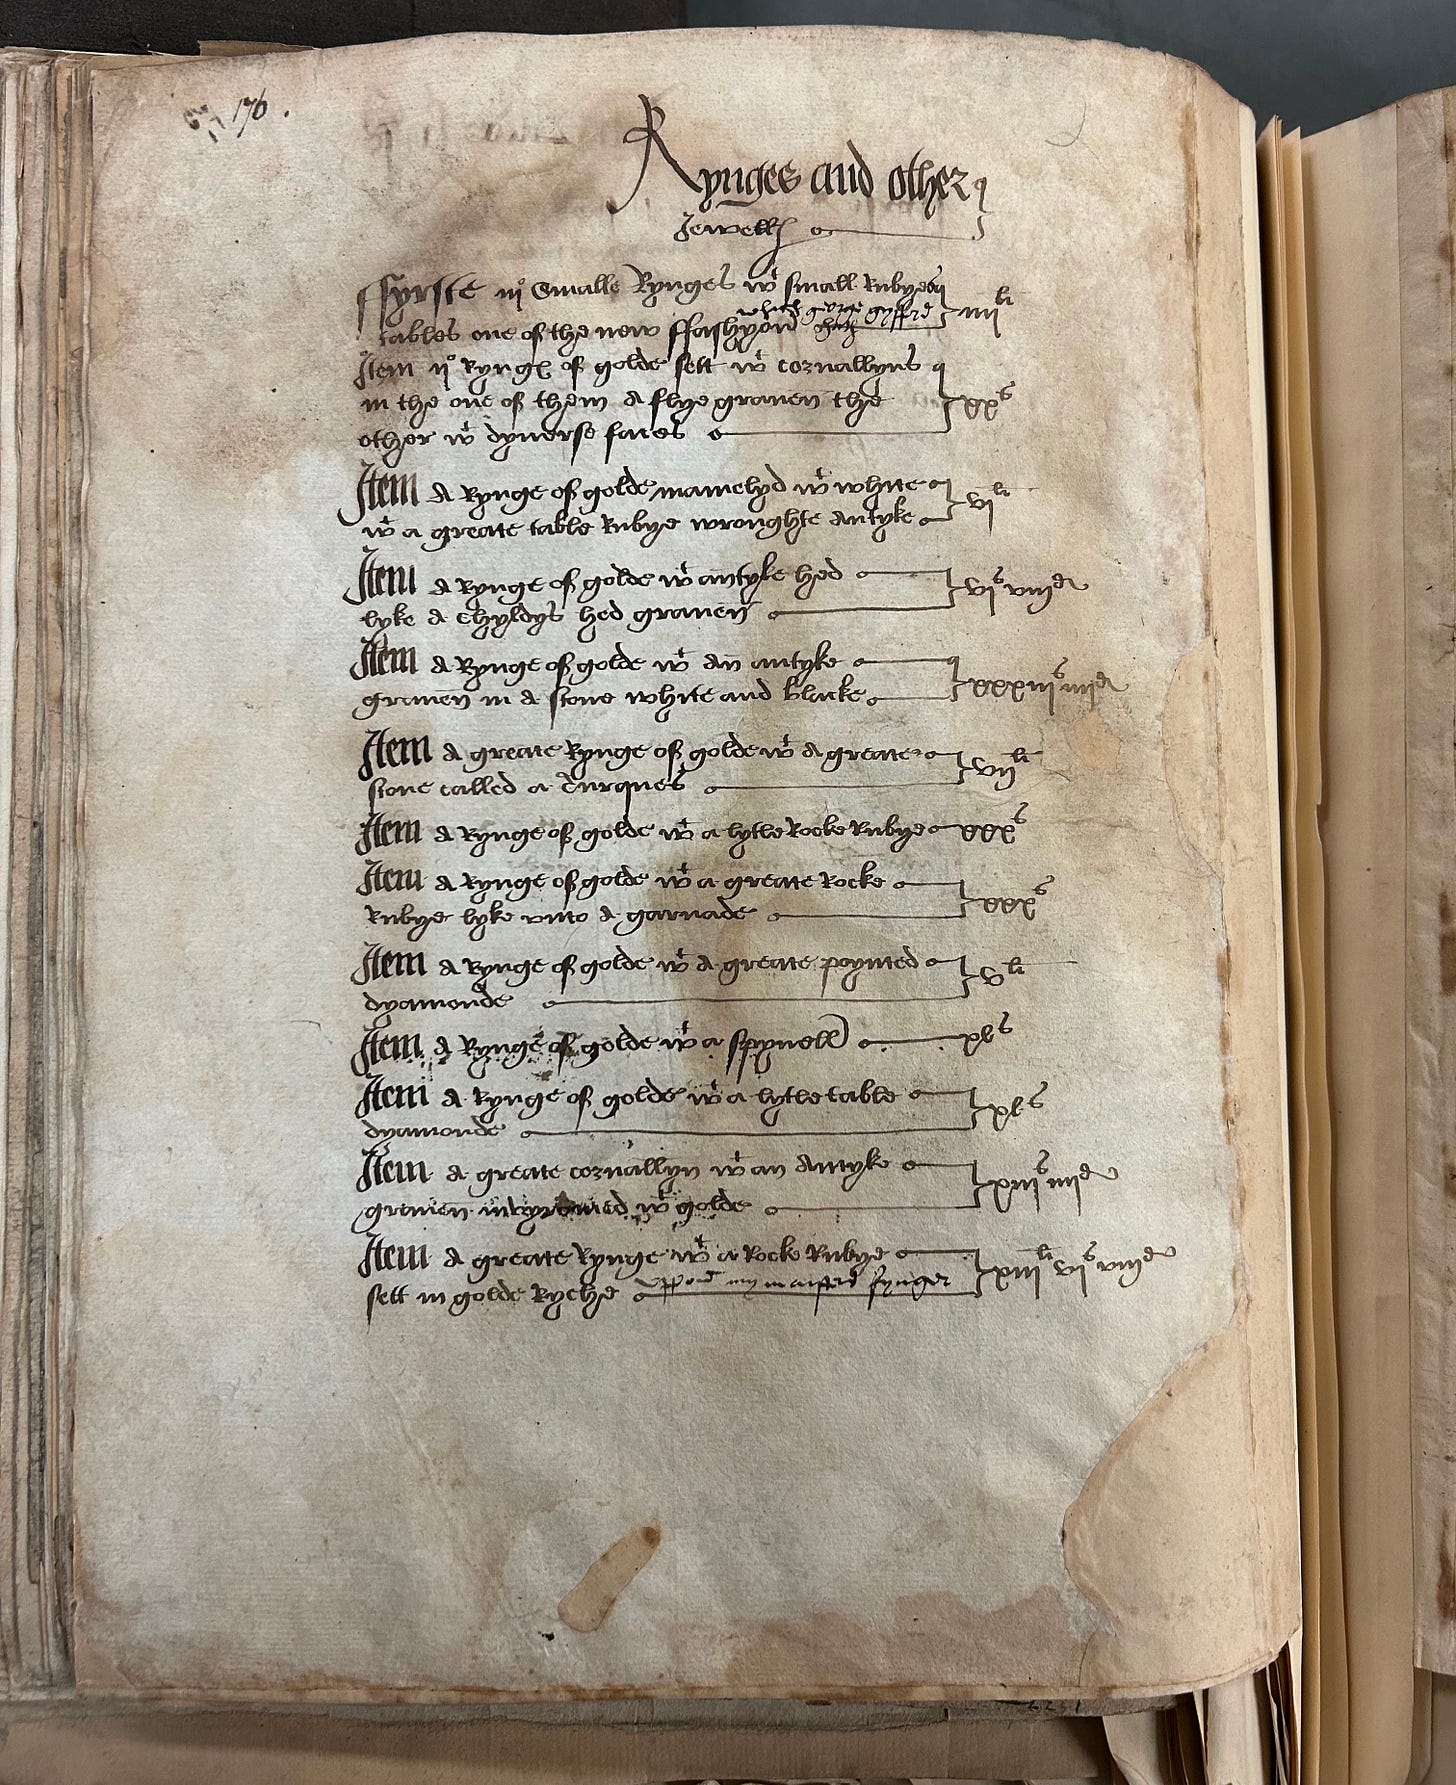 176.
Rynges and other
Jewell
ffyrste iij Smalle Rynges wt small Rubyes
tables one of the new ffashyon which george gyfford hath iiijli
Item ij Rynge of golde sett wt cornallyns
in the one of them a flye graven the xxs
other wt dyverse faces
Item a Rynge of golde inamelyd wt white
wt a greate table Rubye wroughte Antyke vili
Item a Rynge of golde wt antyke hed
lyke a chyldys hed graven vis viijd
Item a Rynge of golde wt an antyke
graven in a stone white and blacke xxxiijs iiijd
Item a greate Rynge of golde wt a greate
stone called a Turques vijli
Item a Rynge of golde wt a lytle Rocke Rubye xxxs
Item a Rynge of golde wt a greate Rocke
Rubye lyke unto a garnade xxxs
Item a Rynge of golde wt a greate poynted
dyamonde vli
Item a Rynge of golde wt a spynell xls
Item a Rynge of golde wt a lytle table
dyamonde xls
Item a greate cornallyn wt an Antyke
graven wt golde xiijs iiijd
Item a greate Rynge wt a Rocke Rubye
sett in golde Ryche uppon my masters fynger xiijli vis viijd